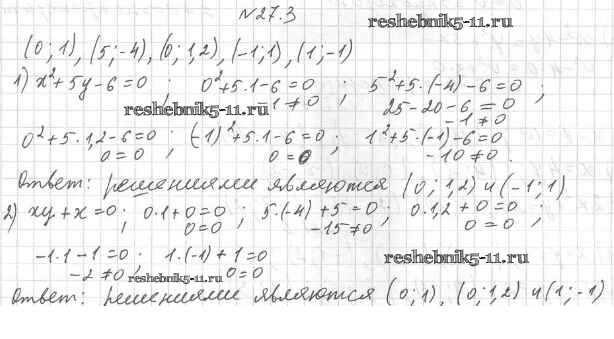 №27.3
reshebnik5-11.ru
(0; 1), (5; -4), (0; 1,2), (-1; 1), (1; -1)
1) x²+5y-6=0 ; 0²+5·1-6=0 ; 5²+5·(-4)-6=0 ;
reshebnik5-11.ru -1≠0 ; 25-20-6=0
-1≠0
0²+5·1,2-6=0 ; (-1)²+5·1-6=0 ; 1²+5·(-1)-6=0
0=0 0=0 -10≠0.
Ответ: решениями являются (0; 1,2) и (-1; 1)
2) xy+x=0; 0·1+0=0 ; 5·(-4)+5=0 ; 0·1,2+0=0 ;
0=0 -15≠0 0=0
-1·1-1=0 ; 1·(-1)+1=0 reshebnik5-11.ru
-2≠0 ; reshebnik5-11.ru 0=0
Ответ: решениями являются (0; 1), (0; 1,2) и (1; -1)